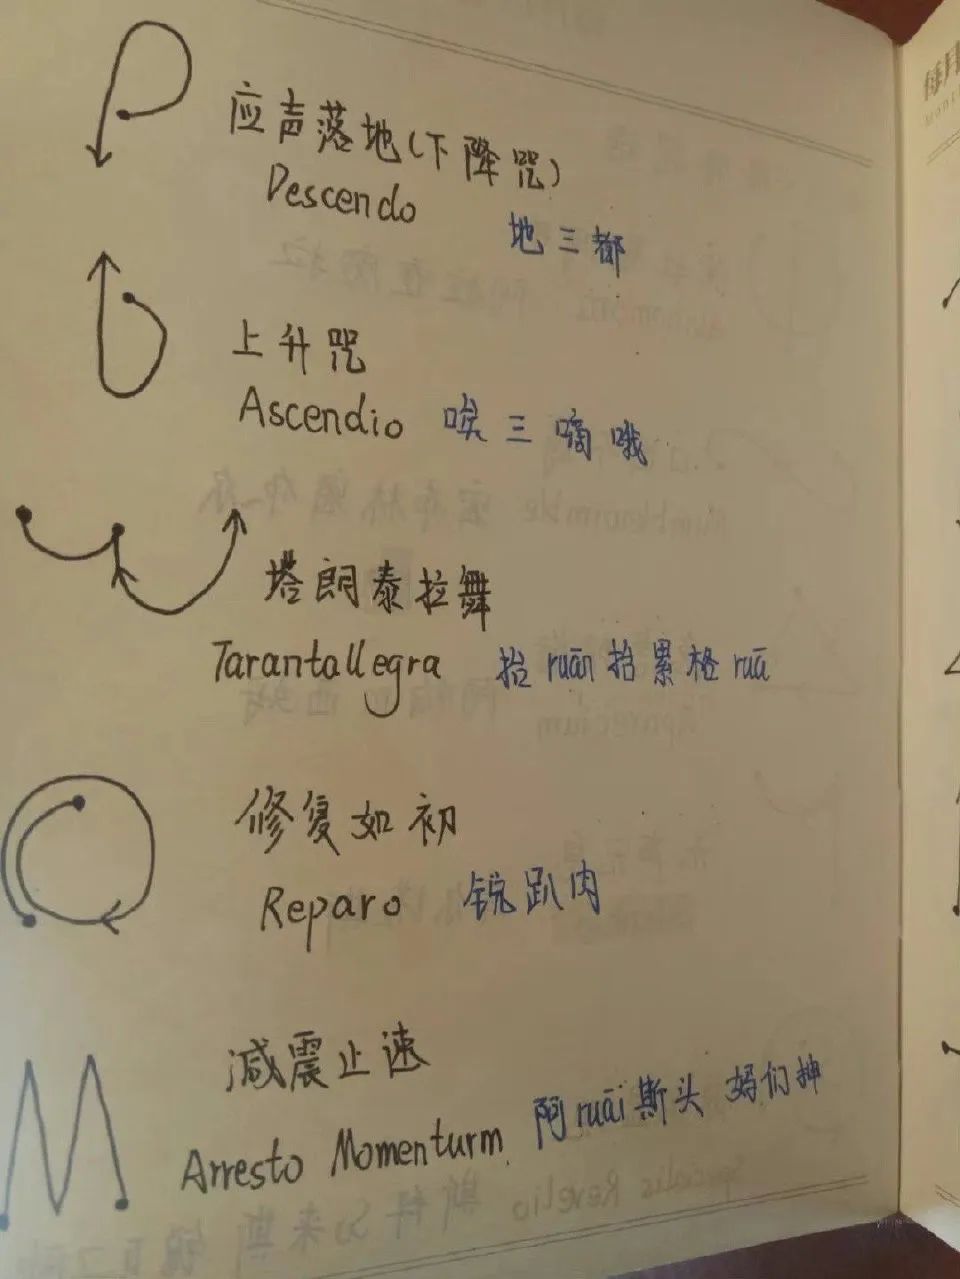 应声落地(下降咒)
Descendo 地三都
上升咒
Ascendio 唉三嘀哦
塔朗泰拉舞
Tarantallegra 抬ruān抬累格ruā
修复如初
Reparo 锐趴肉
减震止速
Arresto Momenturm 阿ruāi斯头 妈们